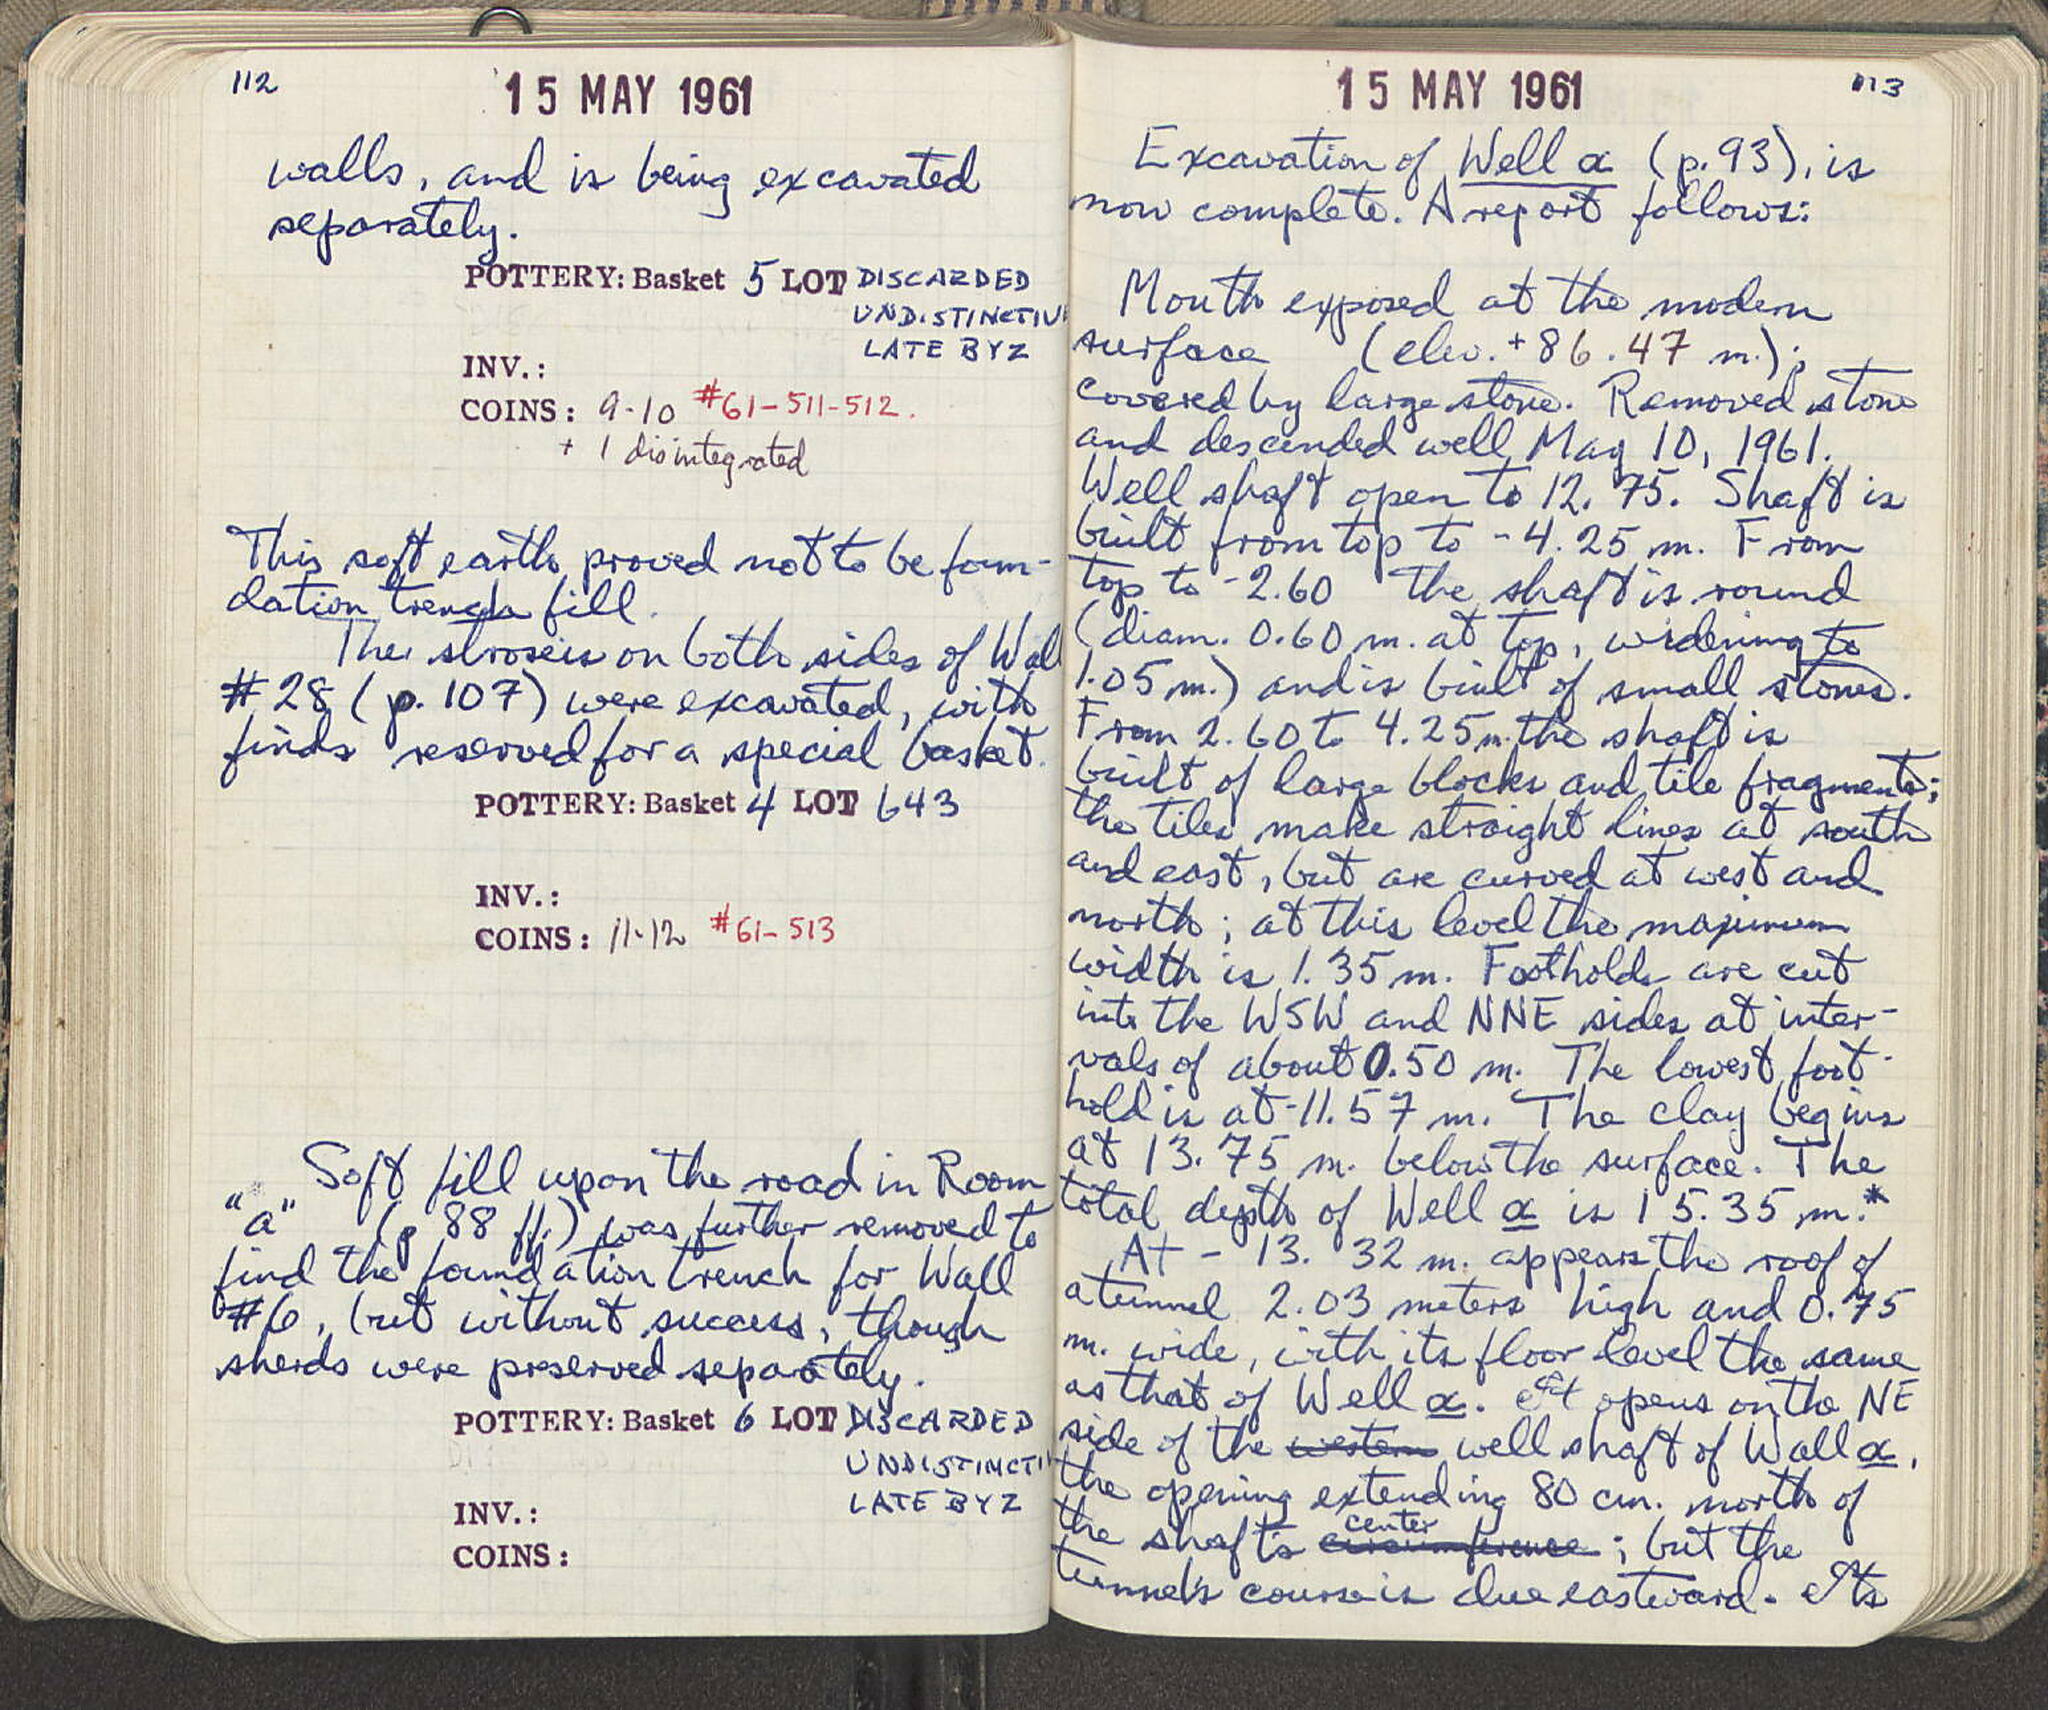 112
15 MAY 1961
walls, and is being excavated
separately.
POTTERY: Basket 5 LOT DISCARDED
UNDISTINCTIV
LATE BYZ
INV.:
COINS: 9-10 #61-511-512.
+ 1 disintegrated
This soft earth proved not to be foun-
dation trench fill.
The stroseis on both sides of Wall
#28 (p. 107) were excavated, with
finds reserved for a special basket.
POTTERY: Basket 4 LOT 643
INV.:
COINS: 11-12 #61-513
Soft fill upon the road in Room
"a" (p 88 ff.) was further removed to
find the foundation trench for Wall
#6, but without success, though
sherds were preserved separately.
POTTERY: Basket 6 LOT DISCARDED
UNDISTINCTIV
LATE BYZ
INV.:
COINS:
15 MAY 1961
113
Excavation of Well α (p. 93), is
now complete. A report follows:
Mouth exposed at the modern
surface (elev. +86.47 m.);
covered by large stone. Removed stone
and descended well May 10, 1961.
Well shaft open to 12.75. Shaft is
built from top to -4.25 m. From
top to -2.60 the shaft is round
(diam. 0.60 m. at top, widening to
1.05 m.) and is built of small stones.
From 2.60 to 4.25 m. the shaft is
built of large blocks and tile fragments;
the tiles make straight lines at south
and east, but are curved at west and
north; at this level the maximum
width is 1.35 m. Footholds are cut
into the WSW and NNE sides at inter-
vals of about 0.50 m. The lowest foot-
hold is at -11.57 m. The clay begins
at 13.75 m. below the surface. The
total depth of Well α is 15.35 m.*
At - 13.32 m. appears the roof of
a tunnel 2.03 meters high and 0.75
m. wide, with its floor level the same
as that of Well α. It opens on the NE
side of the western well shaft of Well α,
the opening extending 80 cm. north of
the shaft's circumference center; but the
tunnel's course is due eastward. Its